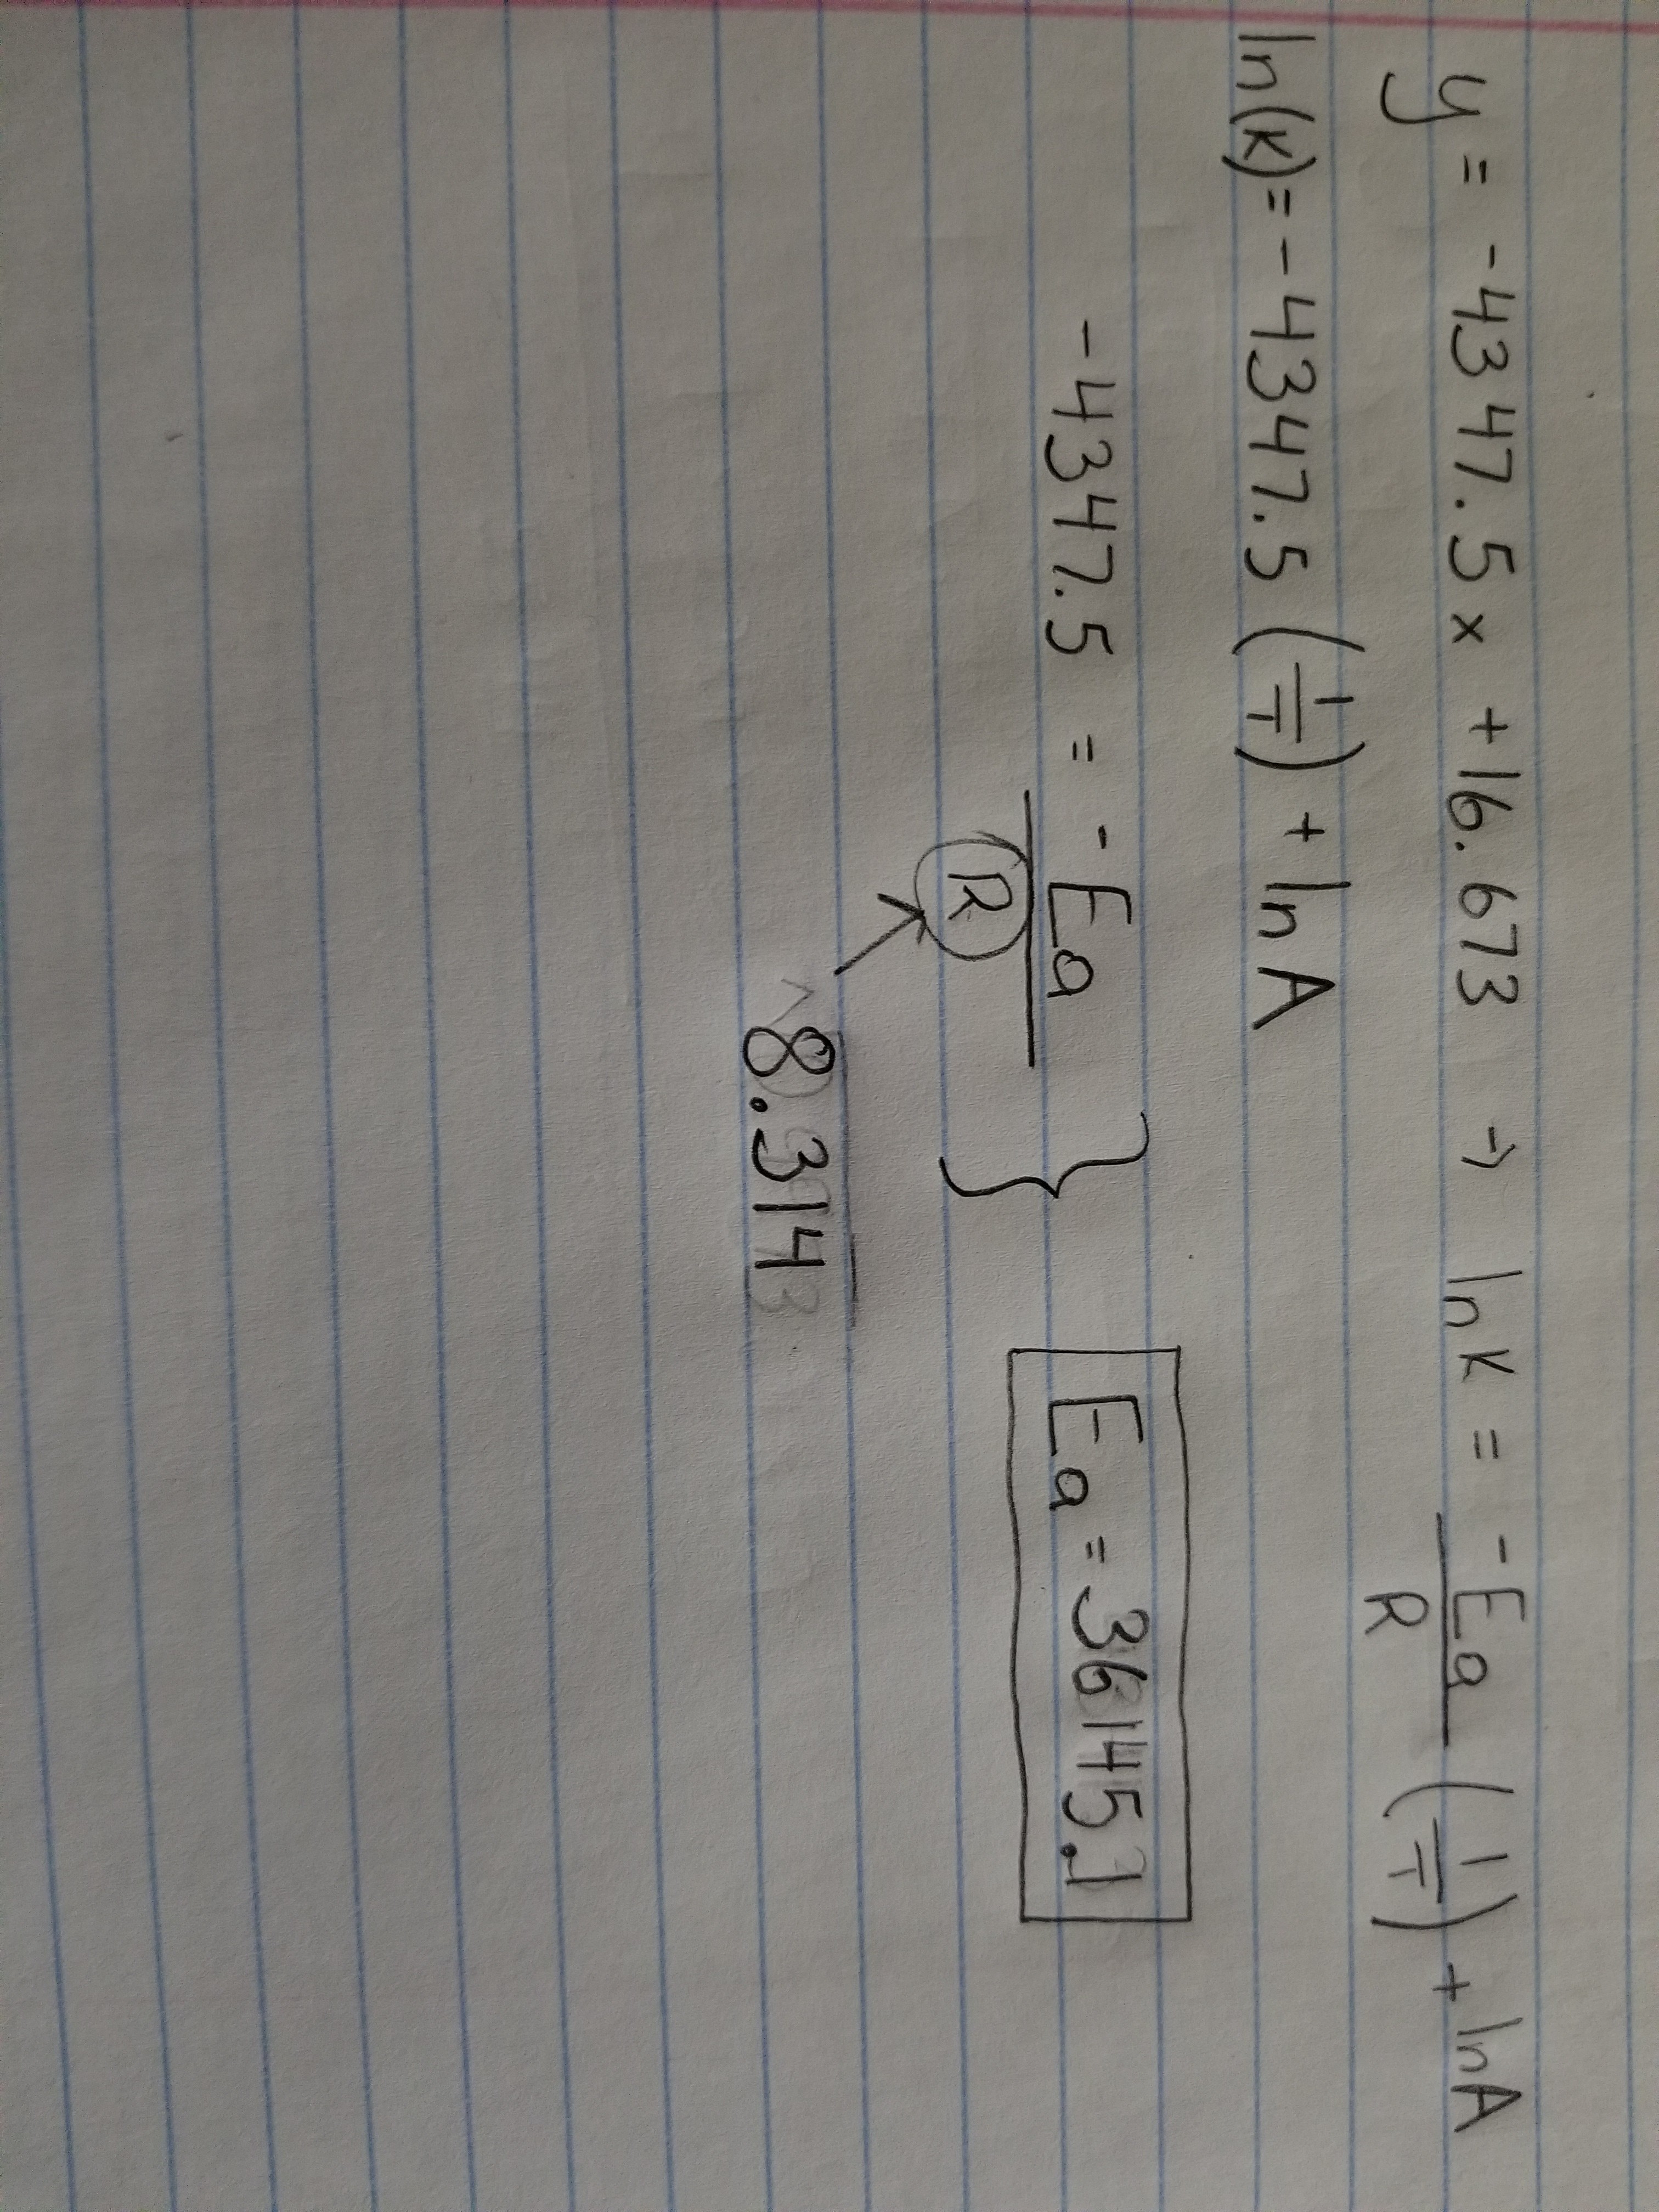 y = -4347.5x + 16.673 → ln k = -Ea/R (1/T) + ln A
ln(k) = -4347.5 (1/T) + ln A
-4347.5 = -Ea/R } Ea = 36145.1
8.314